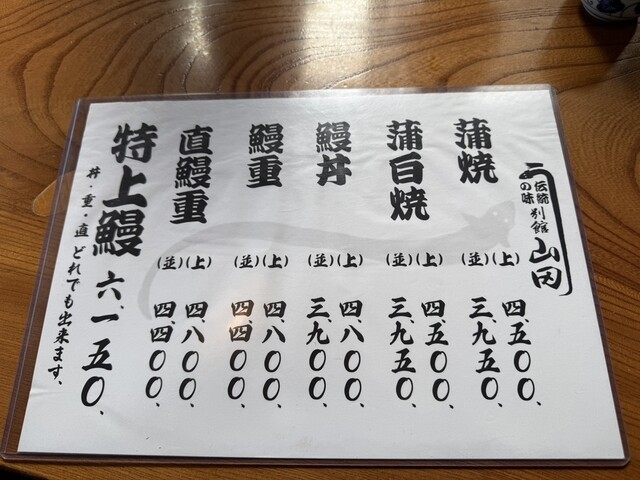 う
伝統の味
別館
山田
蒲焼
(上) 四、五〇〇、
(並) 三、九五〇、
蒲白焼
(上) 四、五〇〇、
(並) 三、九五〇、
鰻丼
(上) 四、八〇〇、
(並) 三、九〇〇、
鰻重
(上) 四、八〇〇、
(並) 四、四〇〇、
直鰻重
(上) 四、八〇〇、
(並) 四、四〇〇、
特上鰻 六、一五〇、
丼・重・直 どれでも出来ます、